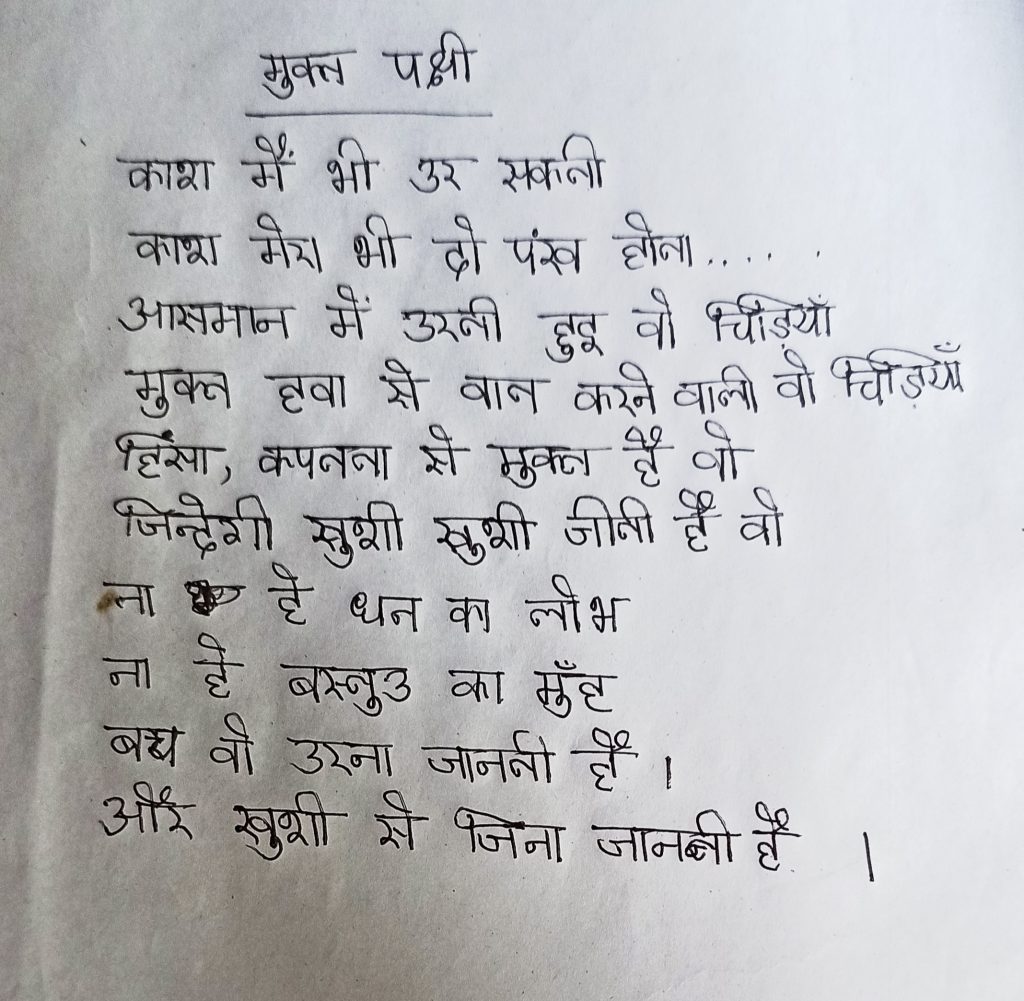 मुक्त पक्षी
काश मैं भी उर सकती
काश मेरा भी दो पंख होता.....
आसमान में उरती हुइ वो चिड़ियाँ
मुक्त हवा से वात करने वाली वो चिड़ियाँ
हिंसा, कपतता से मुक्त है वो
जिन्देगी खुशी खुशी जीती है वो
ना है धन का लोभ
ना है बस्तुउ का मुँह
बस वो उरना जानती है ।
और खुशी से जिना जानती है ।